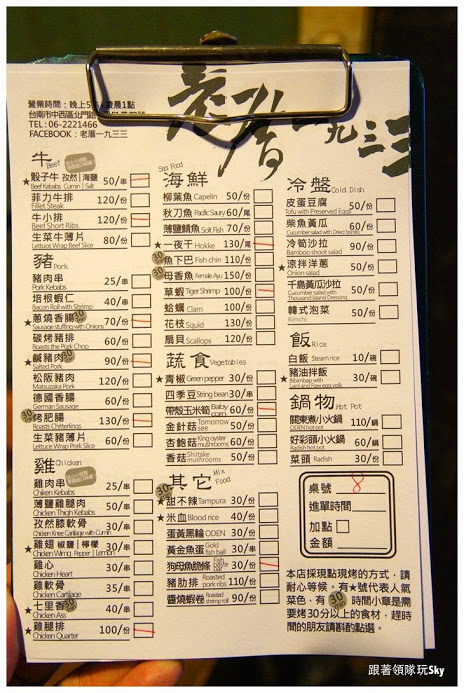 老厝一九三三
營業時間：晚上5點-凌晨1點
台南市中西區北門路
TEL：06-2221466
FACEBOOK：老厝一九三三
牛 Beef
★骰子牛 孜然|海鹽 50/串
Beef Kebabs Cumin | Salt
菲力牛排 120/份
Fillet Steak
牛小排 120/份
Beef Short Ribs
生菜牛薄片 80/份
Lettuce Wrap Beef Slice
豬 Pork
豬肉串 25/串
Pork Kebabs
培根蝦仁 40/串
Bacon Roll with Shrimp
★蔥燒香腸 30 70/份
Sausage stuffing with Onions
碳烤豬排 60/份
Roasts the Pork Chop
★鹹豬肉 30 90/份
Salted Pork
松阪豬肉 120/份
Matsuzaka Pork
德國香腸 60/份
German Sausage
30 烤肥腸 130/份
Roasts Chitterlings
生菜豬薄片 60/份
Lettuce Wrap Pork Slice
雞 Chicken
雞肉串 25/串
Chicken Kebabs
薄鹽雞腿肉 50/串
Chicken Thigh Kebabs
孜然膝軟骨 30/串
Chicken Knee Cartilage with Cumin
★雞翅 椒鹽|檸檬 30/串
Chicken Wimg Pepper | Lemon
雞心 30/串
Chicken Heart
雞軟骨 35/串
Chicken Cartilage
★七里香 30 40/串
Chicken Ass
★雞腿排 100/份
Chicken Quarter
海鮮 Sea Food
柳葉魚 Capelin 50/份
秋刀魚 Pacific Saury 60/尾
薄鹽鯖魚 Solt Fish 70/份
★一夜干 Hokke 130/尾
30 魚下巴 Fish chin 110/份
30 母香魚 Female Ayu 150/份
★草蝦 Tiger Shrimp 100/份
蛤蠣 Clam 100/份
花枝 Squid 130/份
扇貝 Scallops 120/份
蔬食 Vegetables
★青椒 Green pepper 30/份
四季豆 String bean 30/份
帶殼玉米筍 Baby corn 60/份
金針菇 Tomorrow see 50/份
杏鮑菇 King oyster mushrooms 60/份
香菇 Shiitake mushrooms 50/份
其它 Mix Food
30
★甜不辣 Tampura 30/份
★米血 Blood rice 40/份
蛋黃黑輪 ODEN 30/份
黃金魚蛋 Gold fish ball 30/串
30/份
豬肋排 Roasted pork ribs 110/份
醬燒蝦卷 Roasted shrimp roll 90/份
冷盤 Cold Dish
皮蛋豆腐 50/份
Tofu with Preserved Eggs
柴魚黃瓜 60/份
Cucumber salad with Dried bonito
冷筍沙拉 90/份
Bamboo shoot salad
★涼拌洋蔥 50/份
Onion salad
千島黃瓜沙拉 60/份
Cucumber salad with
Thousand Island Dressing
韓式泡菜 50/份
Kimchi
飯 Rice
白飯 Steam rice 10/碗
★豬油拌飯 30/碗
Bibimbap with
Lard and Raw egg yolk
鍋物 Hot Pot
關東煮小火鍋 110/鍋
ODEN hot pot
好彩頭小火鍋 60/鍋
Radish hot pot
菜頭 Radish 30/份
桌號： 8
進單時間
加點
金額
本店採現點現烤的方式，請
耐心等候，有★號代表人氣
菜色，有 30 時間小章是需
要烤30分以上的食材，趕時
間的朋友請斟酌點選。
跟著領隊玩Sky